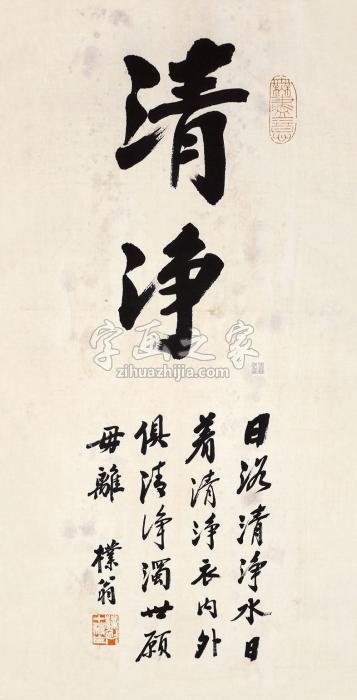 清
净
日浴清净水日
着清净衣内外
俱清净濁世願
毋離 樸翁
字画之家
zihuazhijia.com